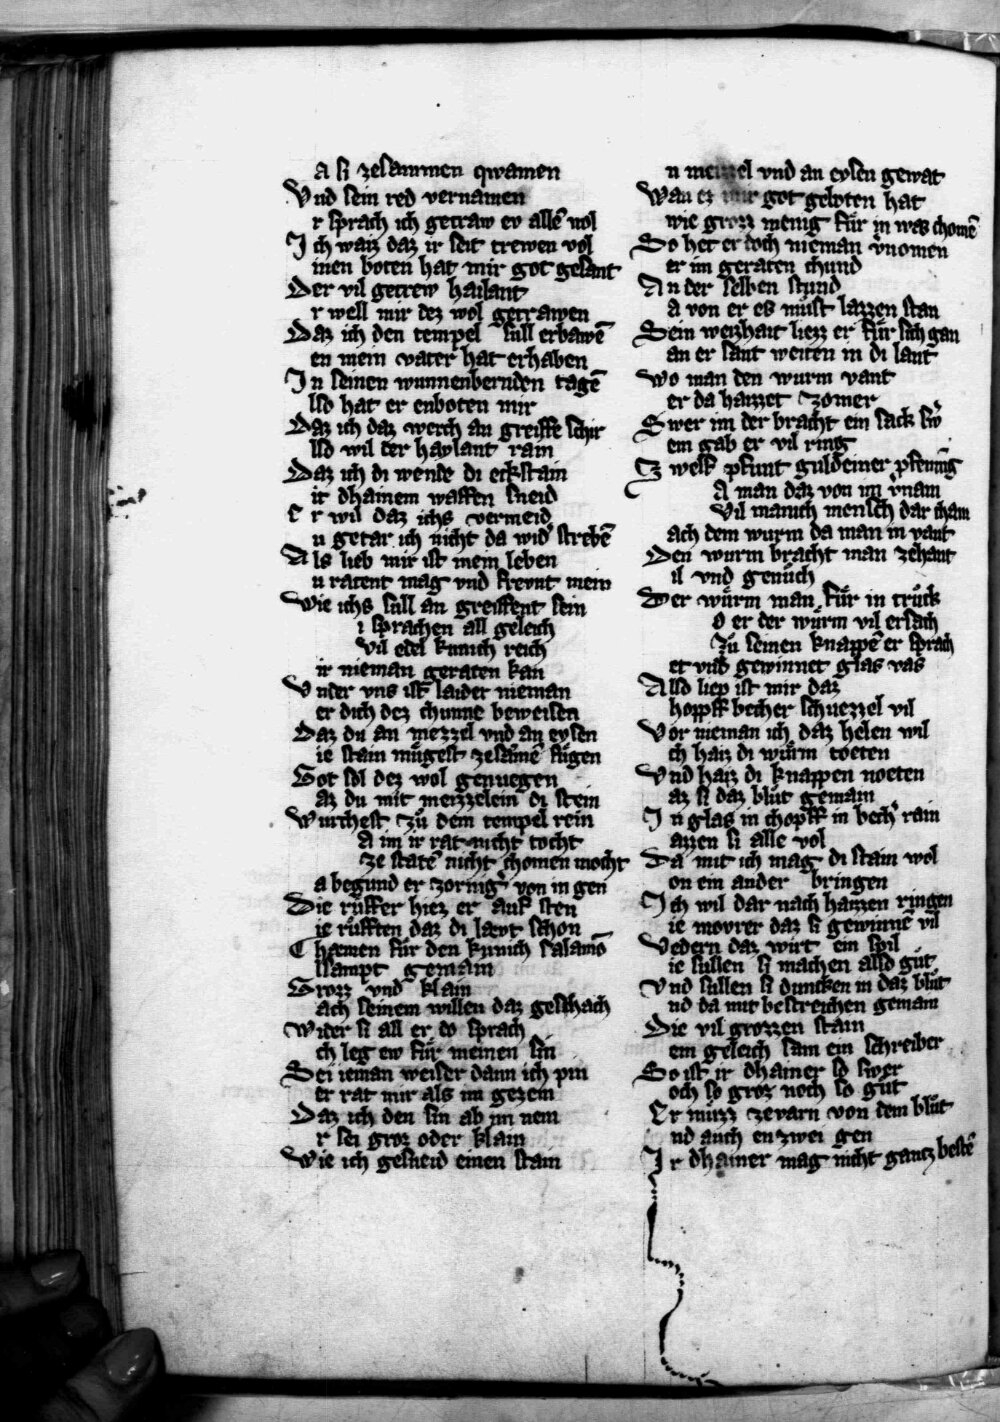 a si zesammen qwamen
Vnd sein red vernamen
r sprach ich getraw ev allē wol
Ich waiz daz ir seit trewen vol
inen boten hat mir got gesant
Der vil getrew hailant
r well mir dez wol getrawen
Daz ich den tempel sull erbawē
en mein vater hat erhaben
In seinen wunnenbernden tagē
lso hat er enboten mir
Daz ich daz werch an greiffe schir
lso wil der haylant rain
Daz ich di wende di eckstain
it dhainem waffen sneid
Er wil daz ichs vermeid
n getar ich nicht da wid᷎ strebē
Als lieb mir ist mein leben
u ratent mag vnd frevnt mein
Wie ichs sull an greiffent sein
i sprachen all geleich
Vil edel kunich reich
ir nieman geraten kan
Vnder vns ist laider nieman
er dich dez chunne beweisen
Daz du an mezzel vnd an eysen
ie stain mügest zesāmē fügen
Got sol dez wol genuegen
az du mit meizzelein di stein
Wurchest zů dem tempel rein
a im ir rat nicht tocht
ze statē nicht chomen mocht
a begund er zornig᷎ von in gen
Die růffer hiez er auf sten
ie růfften daz di lævt schon
Chæmen für den kunich salamō
llsampt gemain
Grozz vnd klain
ach seinem willen daz geschach
Wider si all er do sprach
ch leg ew für meinen sin
Sei ieman weiser dann ich pin
er rat mir als im gezem
Daz ich den sin ab im nem
r sei groz oder klain
Wie ich gesneid einen stain
n meizzel vnd an eysen gewat
Wan ez mir got geboten hat
wie grozz menig für in was chomē
So het er doch nieman v᷎nomen
er im geraten chund
An der selben stund
a von er es můst lazzen stan
Sein weizhait liezz er für sich gan
an er sant weiten in di lant
Wo man den wurm vant
er da haizzet zomer
Swer im der bracht ein sack sw᷎
em gab er vil ring
Zwelf pfunt guldeiner pfenning
a man daz von im v᷎nam
Vil manich mensch dar cham
ach dem wurm da man in vant
Den wurm bracht man zehant
il vnd genůch
Der würm man für in trůck
o er der würm vil ersach
Zů seinen knappē er sprach
et vnd gewinnet glas vas
Also liep ist mir daz
hoppff becher schuezzel vil
Vor nieman ich daz helen wil
ch haiz di würm toeten
Vnd haiz di knappen noeten
az si daz blůt gemain
In glas in chopff in bech᷎ rain
azzen si alle vol
Da mit ich mag di stain wol
on ein ander bringen
Ich wil dar nach haizzen ringen
ie movrer daz si gewinnē vil
Vedern daz wirt ein spil
ie sullen si machen also gůt
Vnd sullen si duncken in daz blůt
nd da mit bestreichen gemain
Die vil grozzen stain
em geleich sam ein schreiber
So ist ir dhainer so swer
och so groz noch so gůt
Er můzz zevarn von dem blůt
nd auch enzwei gen
Ir dhainer mag nicht gantz bestē